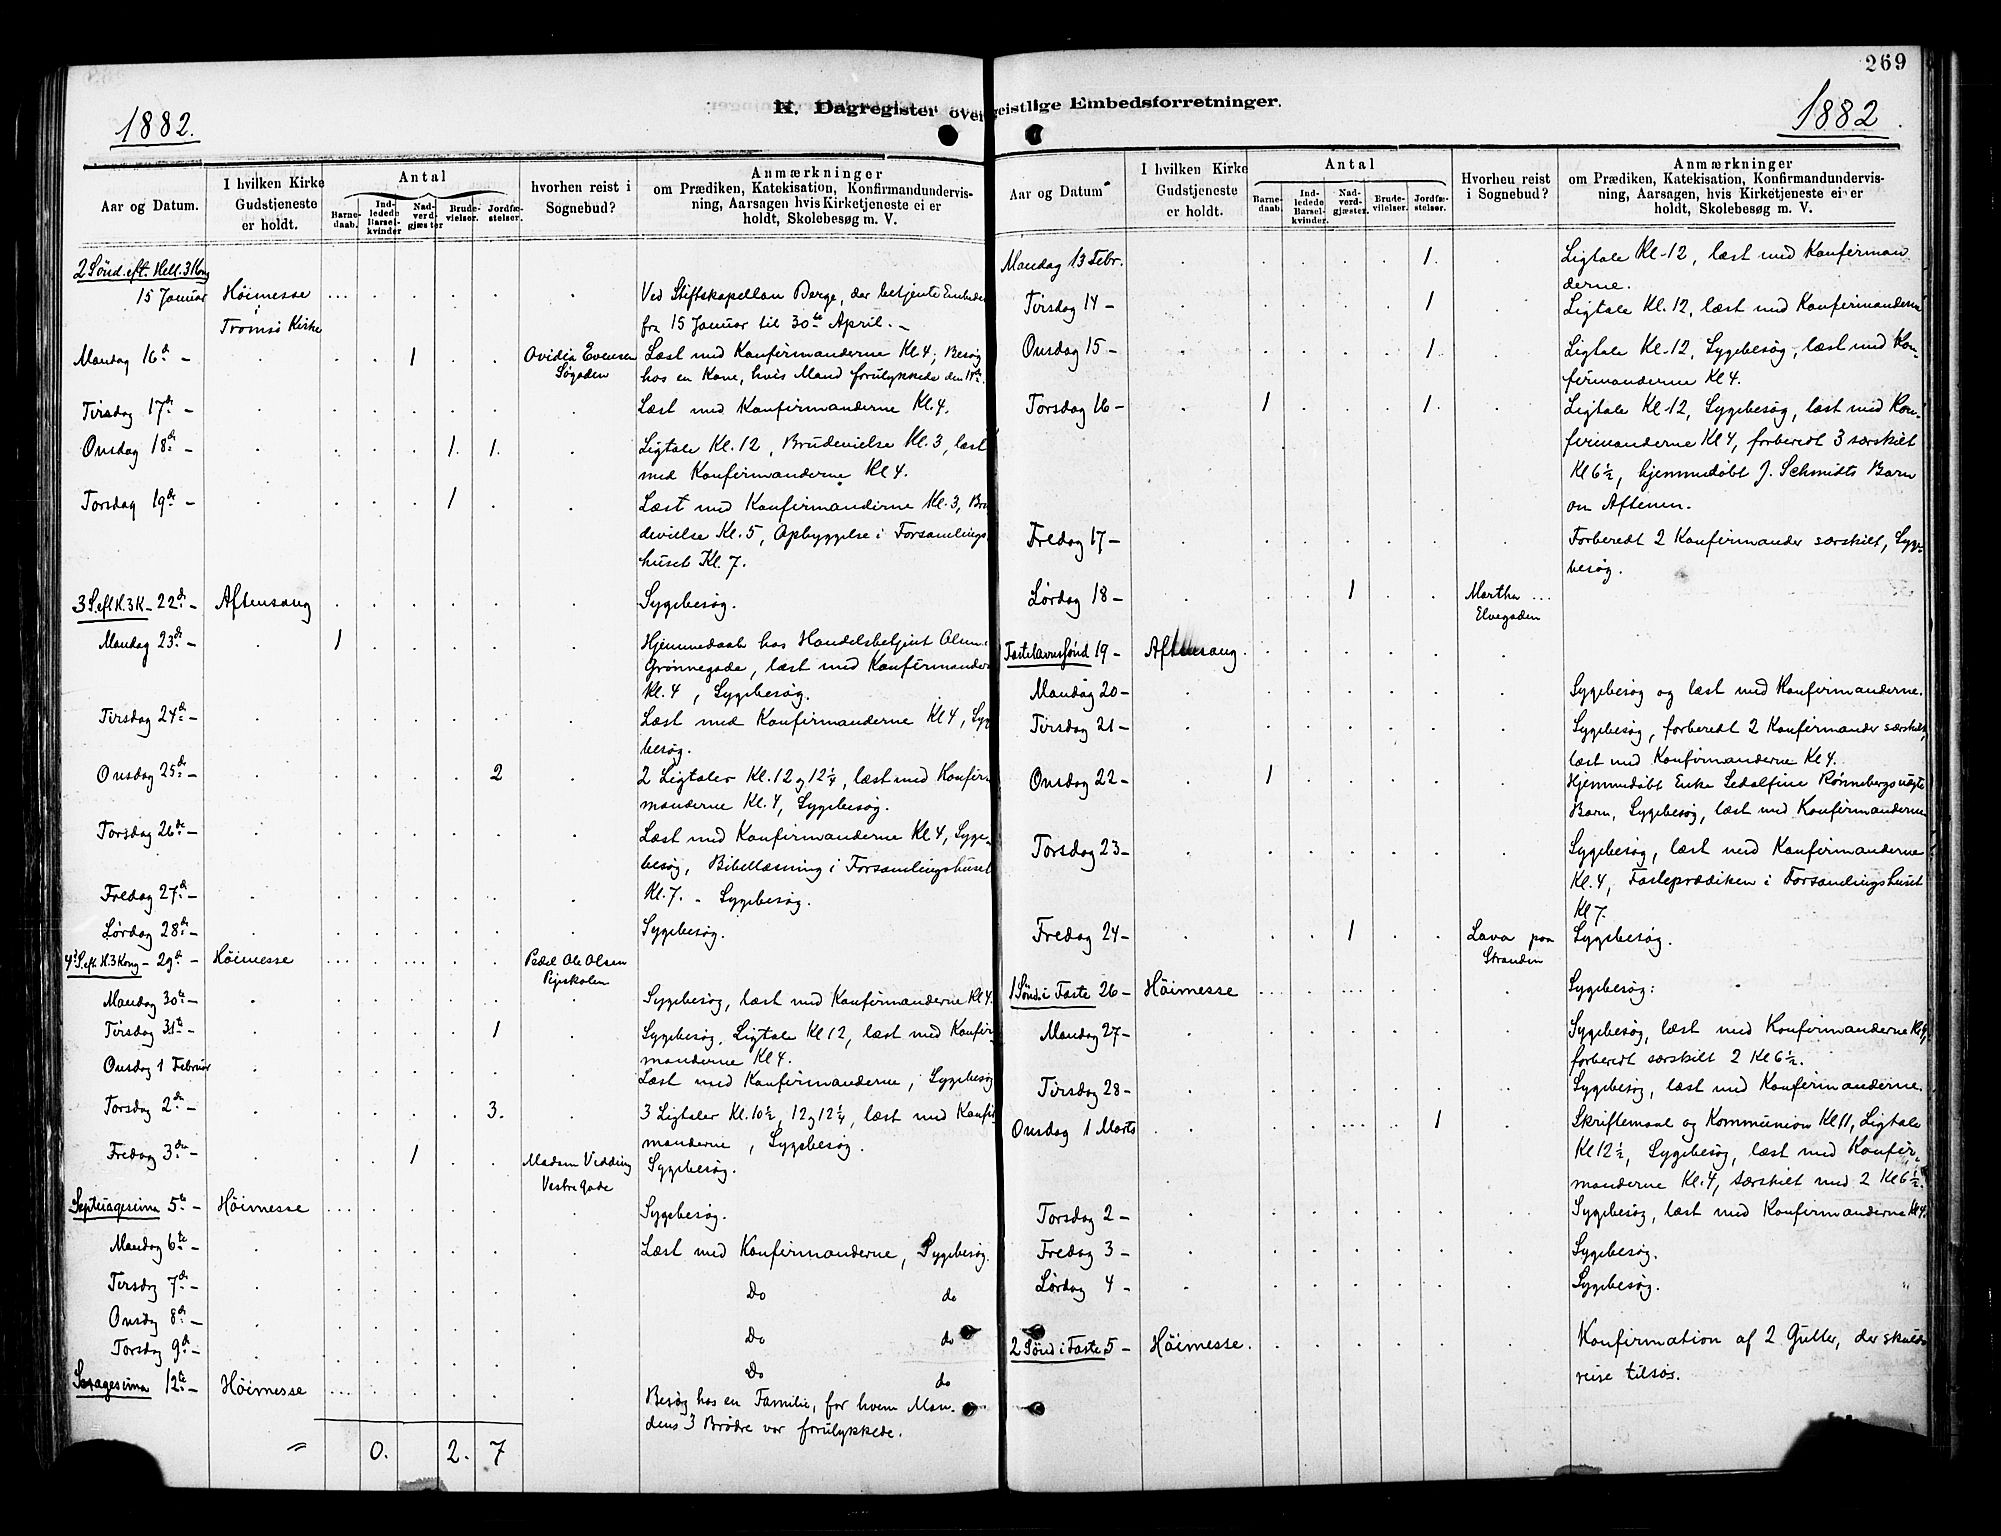 269
K. Dagregister over geistlige Embedsforretninger.
1882.
Aar og Datum.
I hvilken Kirke
Gudstjeneste
er holdt.
Antal
Barne-
daab.
Ind-
ledede
Barsel-
kvinder
Nad-
verd-
gjæster
Brude-
vielser.
Jordfæ-
stelser.
hvorhen reist i
Sognebud?
Anmærkninger
om Prædiken, Katekisation, Konfirmandundervis-
ning, Aarsagen hvis Kirketjeneste ei er
holdt, Skolebesøg m. V.
2 Sönd. eft. Hell. 3 Kong
15 Januar Höimesse Ved Stiftskapellan Berge, der betjente Embedet
i
Tromsö Kirke fra 15 Januar til 30te April. –
Mandag 16de – 1 Ovidia Evensen Læst med Konfirmanderne Kl. 4, Besøg
Søgaden hos en Kone, hvis Mand forulykkede den
Tirsdag 17de – Læst med Konfirmanderne Kl. 4.
Onsdag 18de – 1. 1. Ligtale Kl. 12, Brudevielse Kl. 3, læst
med Konfirmanderne Kl 4.
Torsdag 19de – 1 Læst med Konfirmanderne Kl. 3, Bru
devielse Kl. 5, Opbyggelse i Forsamlings
huset Kl. 7.
3 S. eft H. 3 K – 22de – Aftensang Sygebesøg.
Mandag 23de – 1 Hjemmedaab hos Handelsbetjent Olsen
Grönnegade, læst med Konfirmandern
Kl. 4, Sygebesøg.
Tirsdag 24de – Læst med Konfirmanderne Kl 4, Syg
besøg.
Onsdag 25de – 2 2 Ligtaler Kl. 12 og 12 1/4, læst med Konfir
manderne Kl. 4, Sygebesøg.
Torsdag 26de – Læst med Konfirmanderne Kl 4, Syge-
besøg, Bibellæsning i Forsamlingshuset
Fredag 27de – Kl. 7. – Sygebesøg.
Lørdag 28de – Sygebesøg.
4 S. eft. H. 3 Kong – 29de – Höimesse Pedel Ole Olsen
Pigeskolen
Mandag 30te – Sygebesøg, læst med Konfirmanderne Kl 4.
Tirsdag 31te – 1 Sygebesøg, Ligtale Kl 12, læst med Konfir
manderne Kl 4.
Onsdag 1 Februar Læst med Konfirmanderne, Sygebesøg
Torsdag 2den – 3. 3 Ligtaler Kl. 10 1/2, 12 og 12 1/4, læst med Konfir
manderne, Sygebesøg.
Fredag 3die – 1 Madam Vidding Sygebesøg.
Vestregade
Septuagesima 5te – Höimesse Sygebesøg.
Mandag 6te – Læst med Konfirmanderne, Sygebesøg.
Tirsdag 7de – Do do
Onsdag 8de –
Torsdag 9de – Do do
Do do
Sexagesima 12te – Höimesse Besøg hos en Familie, for hvem Man-
dens 3 Brödre var forulykkede.
0. 2. 7
1882
Aar og Datum
I hvilken Kirke
Gudstjeneste
er holdt.
Antal
Barne-
daab.
Ind-
ledede
Barsel-
kvinder.
Nad-
verd-
gjæster.
Brude-
vielser.
Jordfæ-
stelser.
Hvorheu reist
i Sognebud?
Anmærkninger
om Prædiken, Katekisation, Konfirmandundervis-
ning, Aarsagen, hvis Kirketjeneste ei er
holdt, Skolebesøg m. V.
Mandag 13 Febr. 1. Ligtale Kl. 12, læst med Konfirman
derne.
Tirsdag 14 – 1 Ligtale Kl. 12, læst med Konfirmanderne
Onsdag 15 – 1 Ligtale Kl. 12, Sygebesøg, læst med Kon-
firmanderne Kl 4.
Torsdag 16 – 1 1. Ligtale Kl. 12, Sygebesøg, læst med Kon-
firmanderne Kl 4, forberedt 3 særskilt
Kl 6 1/2, hjemmedøbt J. Schmidts Barn
om Aftenen.
Fredag 17 – Forberedt 2 Konfirmander særskilt, Syge-
besøg.
Lørdag 18 – 1 Martha ...
Elvegaden
Fastelavnssönd 19 – Aftensang.
Mandag 20 – Sygebesøg og læst med Konfirmanderne.
Tirsdag 21 – Sygebesøg, forberedt 2 Konfirmander særskilt,
læst med Konfirmanderne Kl 4.
Onsdag 22 – 1 Hjemmedöbt Enke Sedolfine Rönnebergs uægte
Barn, Sygebesøg, læst med Konfirmanderne
Torsdag 23 – Sygebesøg, læst med Konfirmanderne
Kl. 4, Fasteprædiken i Forsamlingshuset
Kl 7.
Fredag 24 – 1 Lava paa Sygebesøg.
Stranden
1 Sönd. i Faste 26 – Höimesse Sygebesøg.
Mandag 27 – Sygebesøg, læst med Konfirmanderne Kl 4,
forberedt særskilt 2 Kl 6 1/2.
Tirsdag 28 – Sygebesøg, læst med Konfirmanderne.
Onsdag 1 Marts 1 Skriftemaal og Kommunion Kl 11, Ligtale
Kl 12 1/2, Sygebesøg, læst med Konfir-
manderne Kl. 4, særskilt med 2 Kl 6 1/2.
Torsdag 2 – Sygebesøg, læst med Konfirmanderne Kl 4.
Fredag 3 – Sygebesøg.
Lørdag 4 – Sygebesøg.
2 Sönd i Faste 5 – Höimesse. Konfirmation af 2 Gutter, der skulde
reise tilsøs.